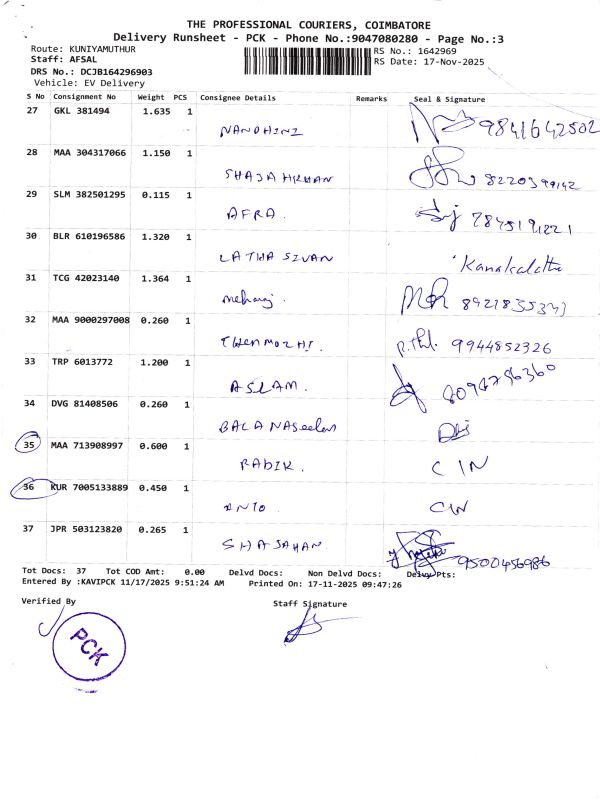 THE PROFESSIONAL COURIERS, COIMBATORE
Delivery Runsheet - PCK - Phone No.:9047080280 - Page No.:3
Route: KUNIYAMUTHUR RS No.: 1642969
Staff: AFSAL RS Date: 17-Nov-2025
DRS No.: DCJB164296903
Vehicle: EV Delivery
S No Consignment No Weight PCS Consignee Details Remarks Seal & Signature
27 GKL 381494 1.635 1
NANDHINI 9841642502
28 MAA 304317066 1.150 1
SHAJAHRHAN
29 SLM 382501295 0.115 1
AFRA.
30 BLR 610196586 1.320 1
LATHA SIVAN Kanakalatha
31 TCG 42023140 1.364 1
32 MAA 9000297008 0.260 1
THENMOZHI. P.Thl. 9944852326
33 TRP 6013772 1.200 1
ASLAM.
34 DVG 81408506 0.260 1
BALA NASeelan
35 MAA 713908997 0.600 1
RADIK. C IN
36 KUR 7005133889 0.450 1
ANTO CIN
37 JPR 503123820 0.265 1
SHAJAHAN 9500456986
Tot Docs: 37 Tot COD Amt: 0.00 Delvd Docs: Non Delvd Docs: Delvy Pts:
Entered By :KAVIPCK 11/17/2025 9:51:24 AM Printed On: 17-11-2025 09:47:26
Verified By Staff Signature
PCK